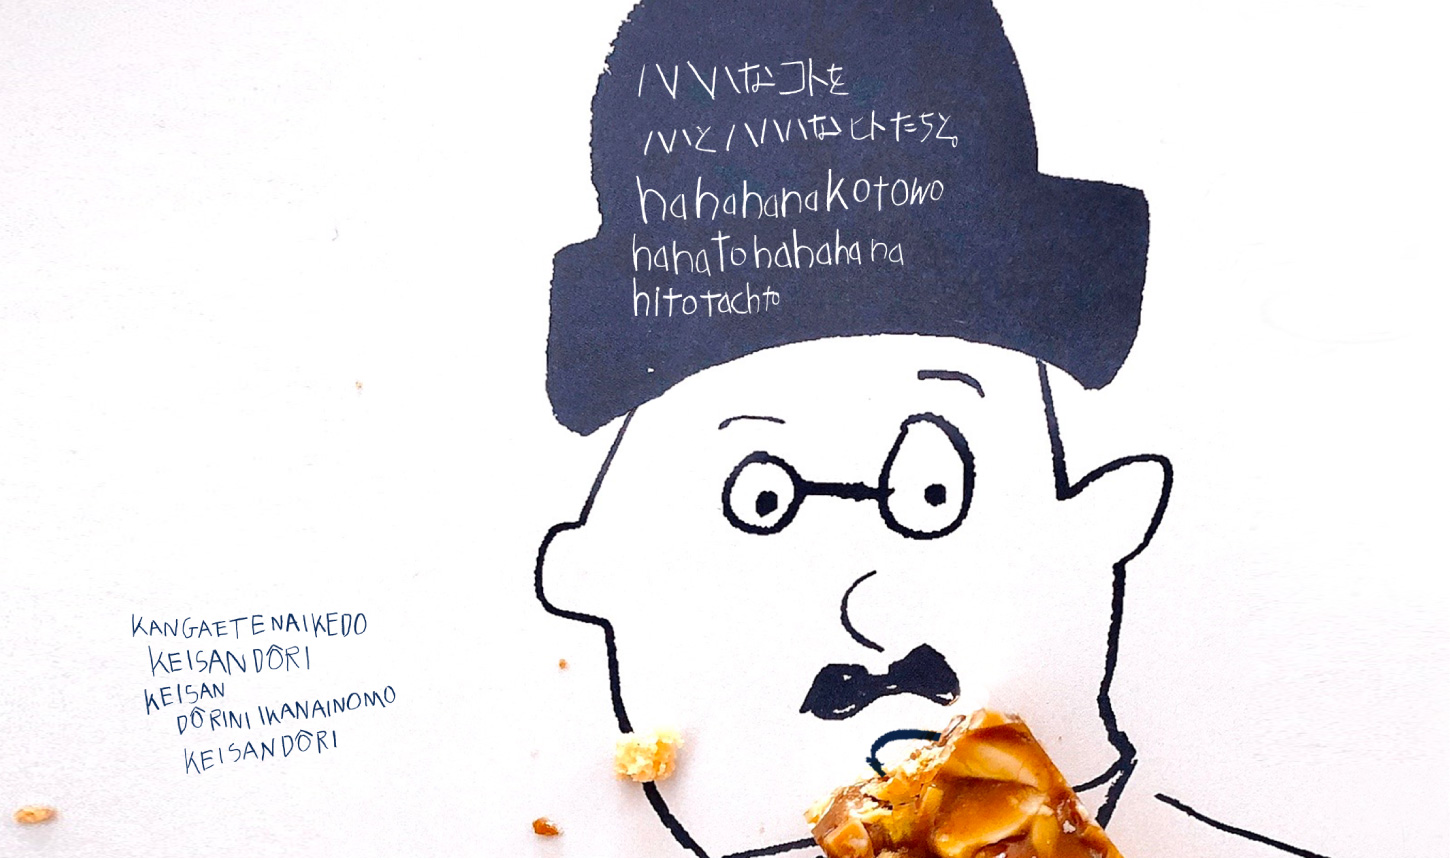 ハハハなコトを
ハハとハハハなヒトたちと。
hahahanakotowo
hahatohahahana
hitotachto
KANGAETENAIKEDO
KEISANDÔRI
KEISAN
DÔRINI IKANAINOMO
KEISANDÔRI